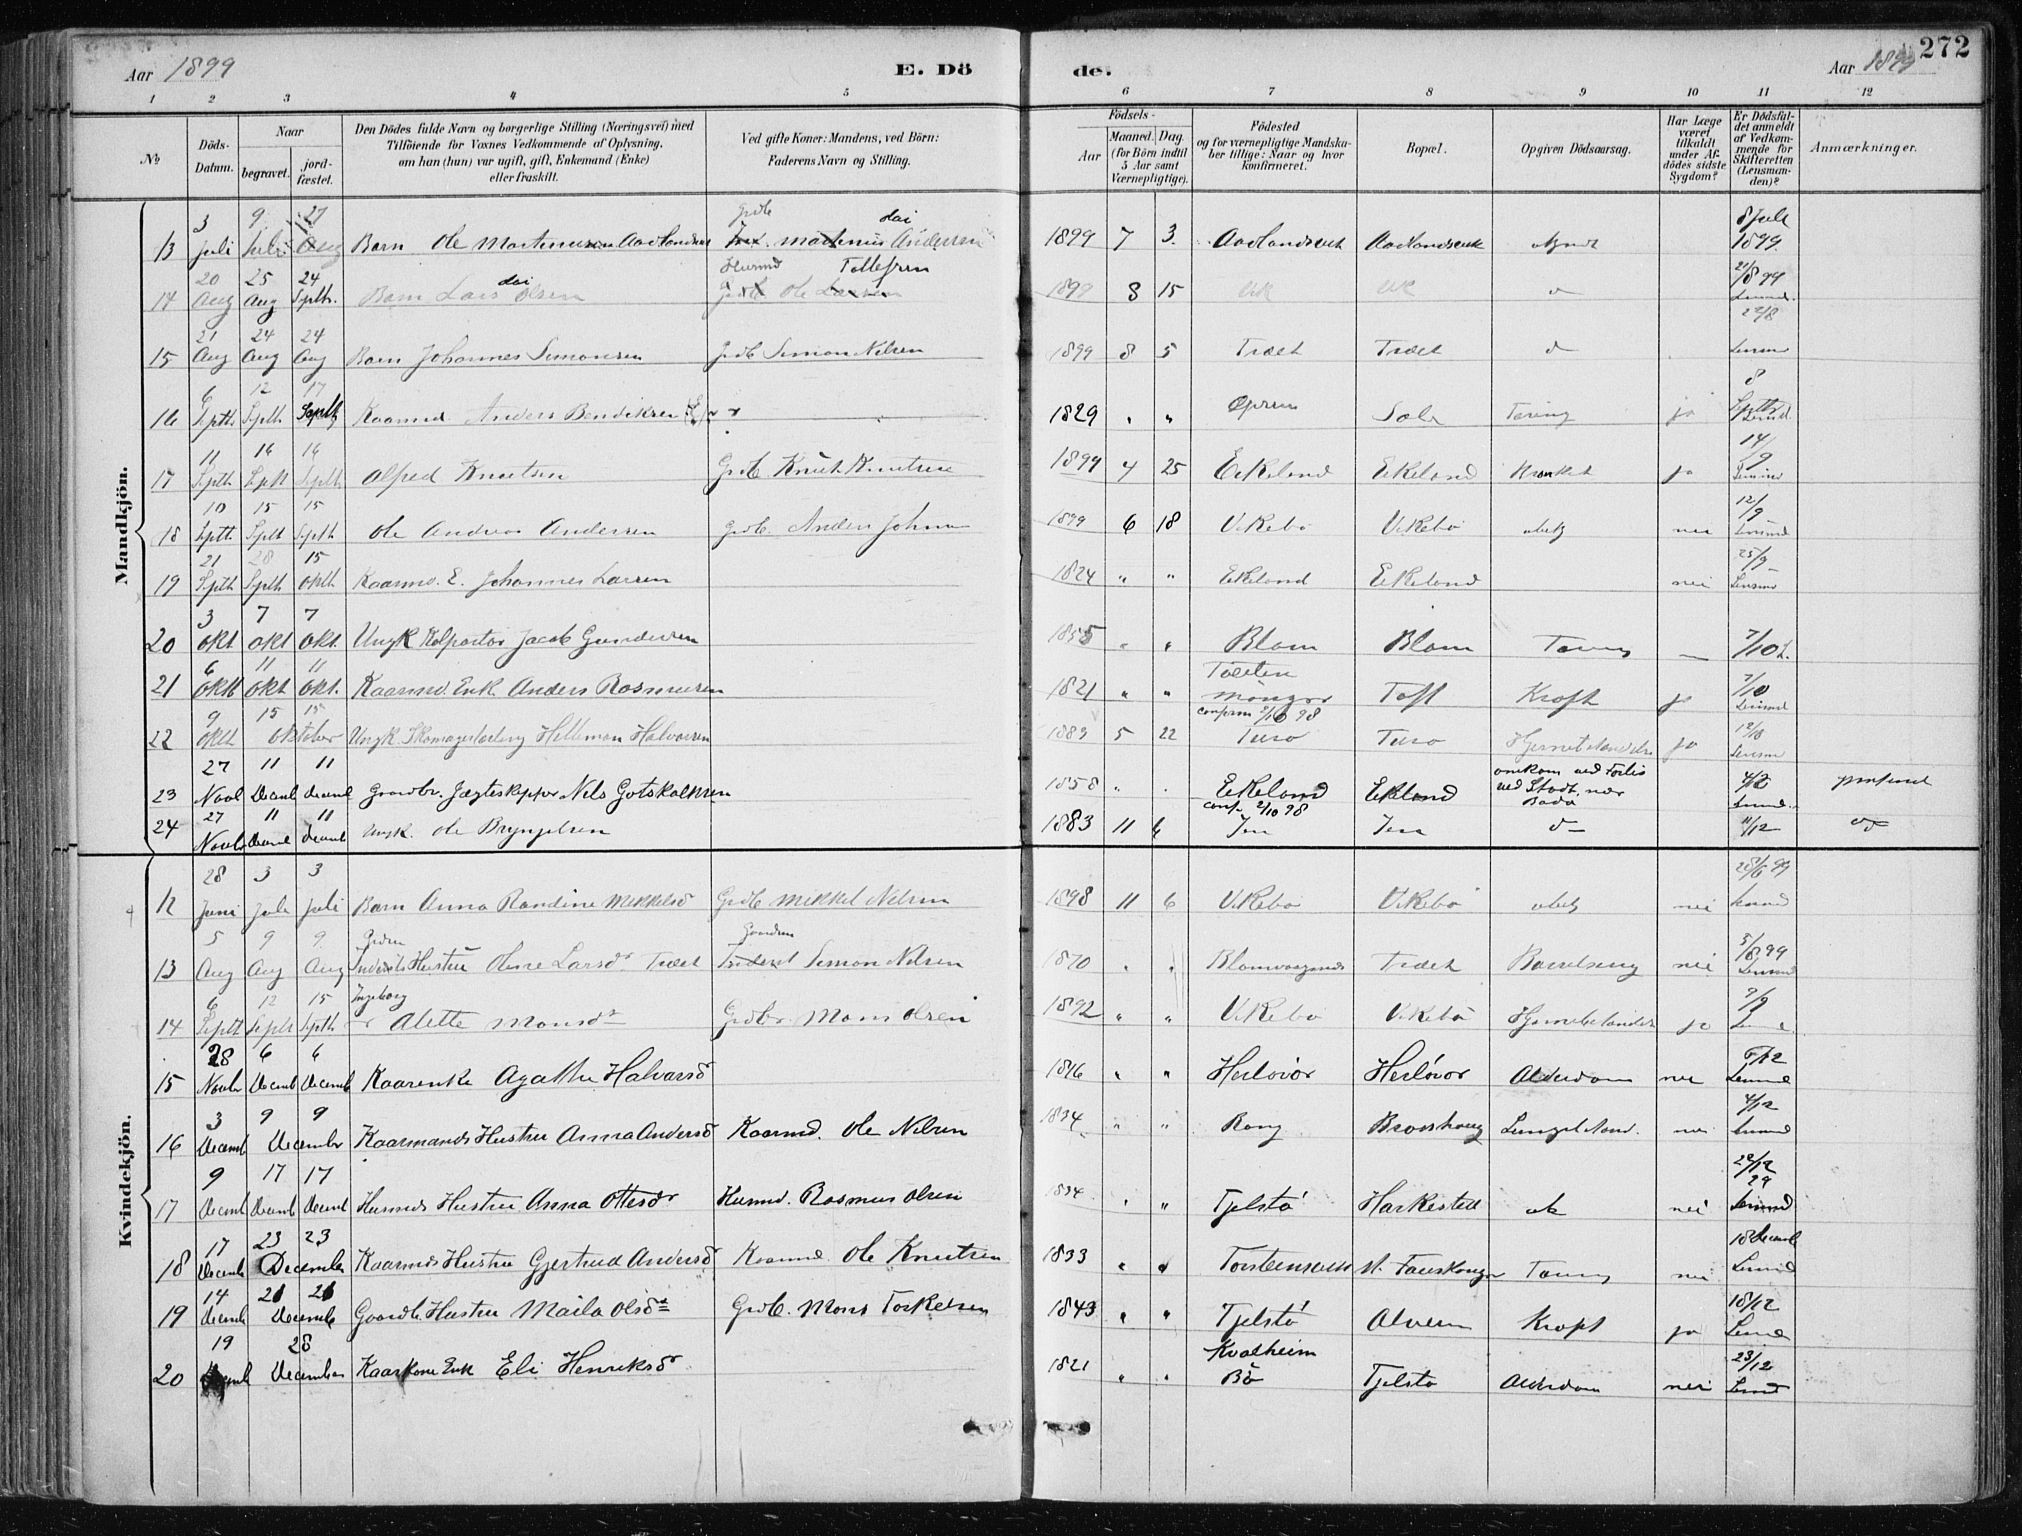 Aar 1899 E. Dö de. Aar 1899 272
1 2 3 4 5 6 7 8 9 10 11 12
№ Döds-Datum. Naar begravet. jord-fæstet. Den Dödes fulde Navn og borgerlige Stilling (Næringsvei) med Tilföiende for Voxnes Vedkommende af Oplysning, om han (hun) var ugift, gift, Enkemand (Enke) eller fraskilt. Ved gifte Koner: Mandens, ved Börn: Faderens Navn og Stilling. Födsels- Aar Maaned. Dag. (for Börn indtil 5 Aar samt Værnepligtige). Födested og for værnepligtige Mandskaber tillige: Naar og hvor konfirmeret. Bopæl. Opgiven Dödsaarsag. Har Læge været tilkaldt under Afdödes sidste Sygdom? Er Dödsfaldet anmeldt af Vedkommende for Skifteretten (Lensmanden)? Anmærkninger.
Mandkjön.
13 3 Juli 9 Juli 27 Aug Barn Ole Martinussen Aadlandsvik Martinus Andersen 1899 7 3 Aadlandsvik Aadlandsvik 8 Juli 1899
14 20 Aug 25 Aug 24 Septb. Barn Lars Olsen Husmd Ole Tollefsen 1899 8 15 21/8 99 Lensmd.
15 21 Aug 24 Aug 24 Aug Barn Johannes Simonsen Grdb Simon Nilsen 1899 8 5 Træet Træet 22/8 Lensmd
16 6 Septb. 12 Septb 17 Septb Kaarmd. Anders Bendiksen 1829 " " Sæle Tæring ja 8 Septb Lensmd.
17 11 Septb 16 Septb 16 Septb Alfred Knutsen Grdb Knut Knutsen 1899 4 25 Eikeland Eikeland ja 14/9 Lensmd
18 10 Septb. 15 Septb 15 Septb Ole Andreas Andersen Grdb. Anders Johns 1899 6 18 Vikebö Vikebö nei 12/9 Lensmd
19 21 Septb 28 Septb 15 Oktb Kaarmd. E. Johannes Larsen 1824 " " Eikeland Eikeland nei 25/9 Lensmd
20 3 Okt 7 Okt 7 Okt. Ungk Kolportør Jacob Gundersen 1855 " " Blom Blom Tæring — 7/10 L.
21 6 Oktb 11 Okt 11 Okt. Kaarmd. Enk. Anders Rasmussen 1821 " " Mangør Toft Kræft ja 7/10 Lensmd
22 9 Oktb 15 15 Oktober Ungk. Skomagerlærling Hilleman Halvorsen 1883 5 22 confirm 2/10 98 Turø Turø Hjernebetændelse ja 12/10 Lensm
23 27 Novb 11 Decemb 11 Decemb Gaardbr. Jægteskipper Nils Gotskalksen 1858 " " Eikeland Eikeland omkom ved Forlis ved Stadt, nær Bodø 4/12 Lensmd.
24 27 Novb 11 Decemb 11 Decemb Ungk. Ole Bryngelsen 1883 11 6 conf. 2/10 98 do 11/12 do
Kvindekjön.
12 28 Juni 3 Juli 3 Juli Barn Anna Randine Mikkelsd Grdb Mikkel Nilsen 1898 11 6 Vikebö Vikebö nei 28/6 99 Lensmd
13 5 Aug 9 Aug 9 Aug Hustru Oline Larsdr Træet Gaardm Simon Nilsen 1870 " " Blomvaagnes Træet Barselseng nei 5/8 99 Lensmd
14 6 Septb 12 Septb 15 Septb Ingeborg Alette Monsdr Grdbr. Mons Olsen 1892 " " Vikebö Vikebö Hjernebetændelse ja 9/9 Lensmd.
15 28 Novbr 6 Decemb 6 Decemb Kaarenke Agathe Halvorsd 1816 " " Herløvør Herløvør Alderdom nei 5/12 Lensmd
16 3 Decemb 9 9 December Kaarmands Hustru Anna Andersd Kaarmd. Ole Nilsen 1834 " " Rong Lungebetænd. nei 4/12 Lensmd
17 9 Decemb 17 Decemb 17 Decemb Husmds Hustru Anna Ottesdr Husmd. Rasmus Olsen 1834 " " Tjelstø Harkestad nei Lensmd
18 17 Decemb 23 23 December Kaarmds Hustru Gjertrud Andersd Kaarmd Ole Knutsen 1833 " " Torsteinsvik Tæring nei 18 Decemb Lensmd
19 14 Decemb 21 21 December Gaardb. Hustru Maila Olsdr Grdb. Mons Torkelsen 1843 " " Tjelstø Alveim Kræft ja 18/12 Lensmd
20 19 Decemb 28 December Kaarkone Enk Eli Henriksd 1821 " " Kvalheim Bø Tjelstø Alderdom nei 23/12 Lensmd